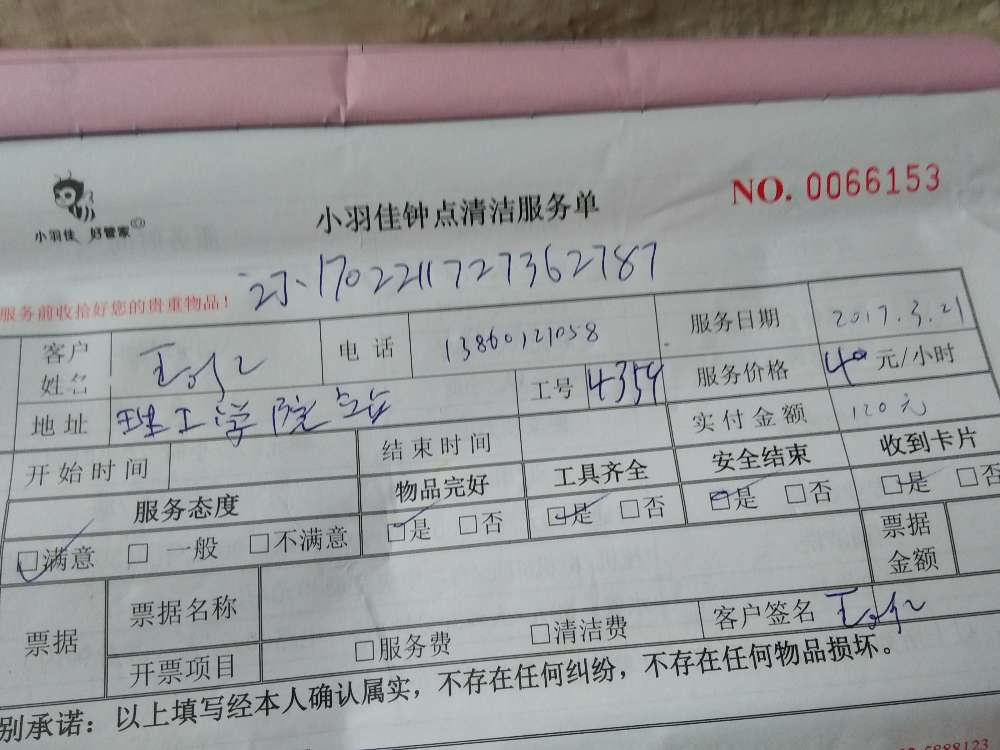 小羽佳 好管家
小羽佳钟点清洁服务单
NO. 0066153
1702211727362787
服务前收拾好您的贵重物品！
客户姓名 王 电话 13860121058 服务日期 2017.3.21
地址 理工学院 工号 4359 服务价格 40 元/小时
开始时间 结束时间 实付金额 120元
服务态度 物品完好 工具齐全 安全结束 收到卡片
□满意 □一般 □不满意 □是 □否 □是 □否 □是 □否 □是 □否
票据 票据名称 票据金额
开票项目 □服务费 □清洁费 客户签名 王
别承诺：以上填写经本人确认属实，不存在任何纠纷，不存在任何物品损坏。